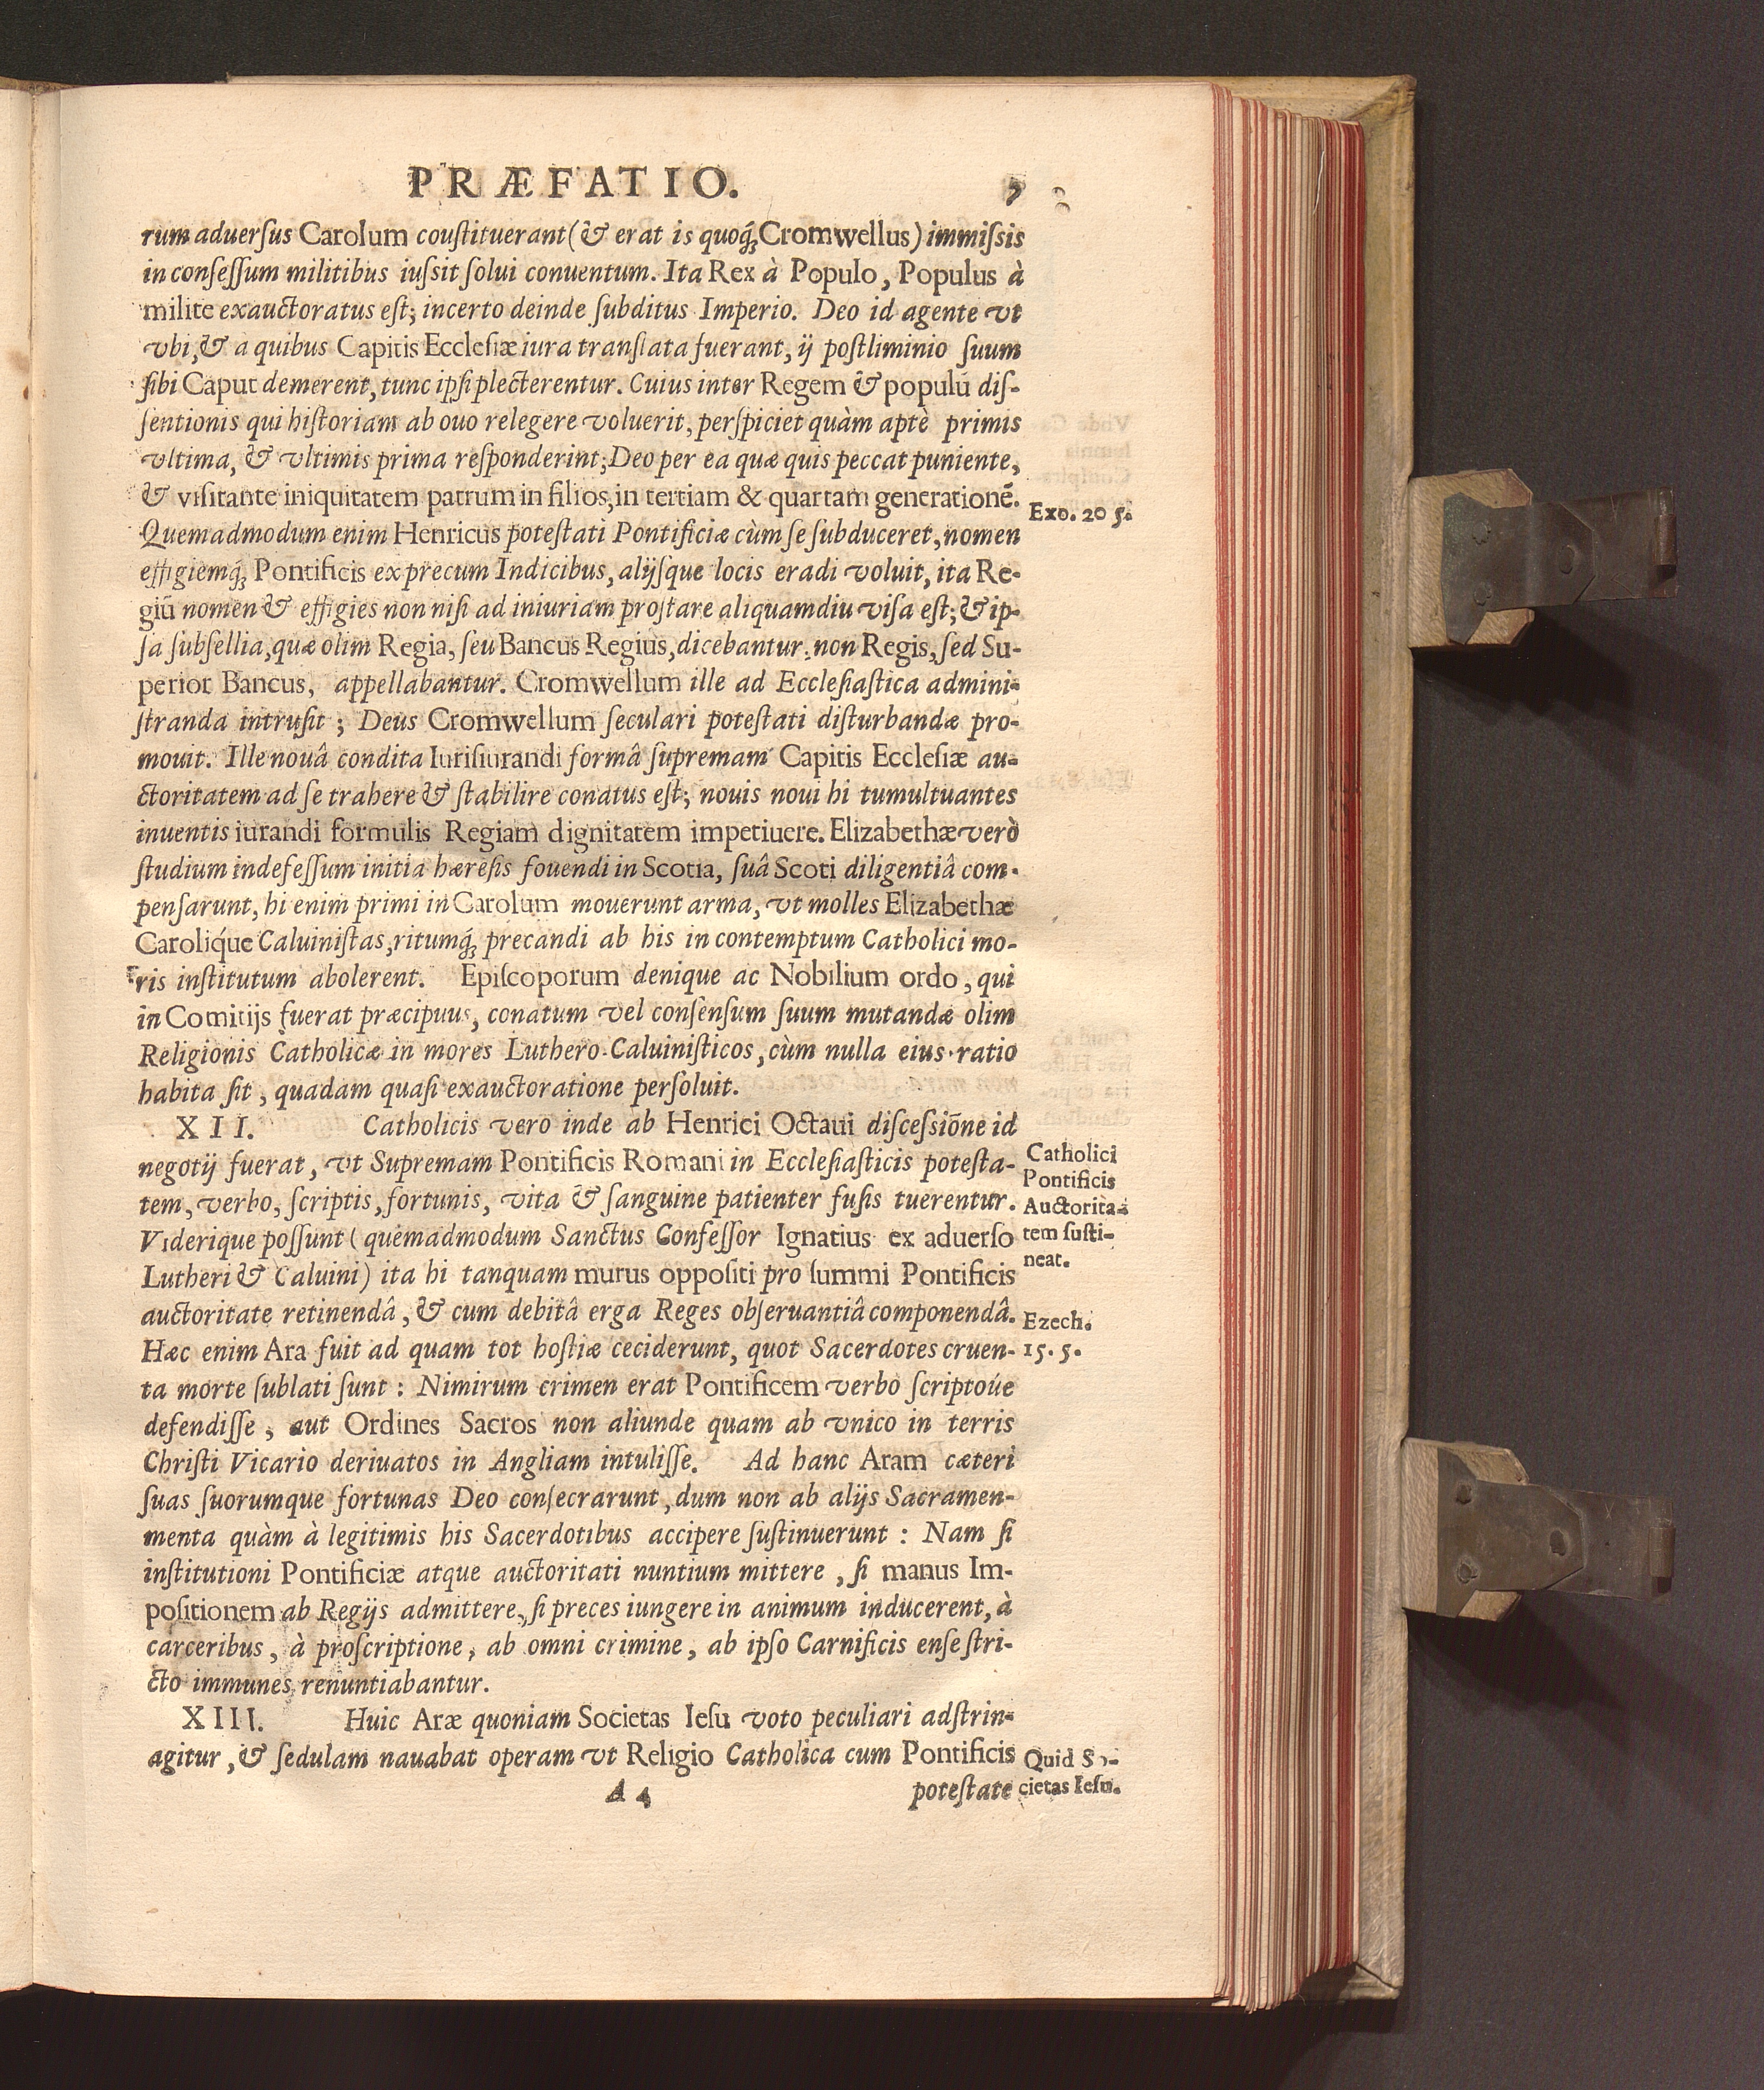 PRÆFATIO.
rum aduerſus Carolum couſtituerant (& erat is quoq́; Cromwellus) immiſsis
in conſeſſum militibus iuſsit ſolui conuentum. Ita Rex à Populo, Populus à
milite exauctoratus eſt; incerto deinde ſubditus Imperio. Deo id agente vt
vbi, & a quibus Capitis Eccleſiæ iura translata fuerant, ij poſtliminio ſuum
ſibi Caput demerent, tunc ipſi plecterentur. Cuius inter Regem & populū diſ-
ſentionis qui hiſtoriam ab ouo relegere voluerit, perſpiciet quàm aptè primis
vltima, & vltimis prima reſponderint; Deo per ea quæ quis peccat puniente,
& viſitante iniquitatem patrum in filios, in tertiam & quartam generationē.
Exo. 20 5.
Quemadmodum enim Henricus poteſtati Pontificiæ cùm ſe ſubduceret, nomen
effigiemq́; Pontificis ex precum Indicibus, alijſque locis eradi voluit, ita Re-
giū nomen & effigies non niſi ad iniuriam proſtare aliquamdiu viſa eſt; & ip-
ſa ſubſellia, quæ olim Regia, ſeu Bancus Regius, dicebantur, non Regis, ſed Su-
perior Bancus, appellabantur. Cromwellum ille ad Eccleſiaſtica admini-
ſtranda intruſit; Deus Cromwellum ſeculari poteſtati diſturbandæ pro-
mouit. Ille nouâ condita Iuriſiurandi formâ ſupremam Capitis Eccleſiæ au-
ctoritatem ad ſe trahere & ſtabilire conatus eſt; nouis noui hi tumultuantes
inuentis iurandi formulis Regiam dignitatem impetiuere. Elizabethæ verò
ſtudium indefeſſum initia hæreſis fouendi in Scotia, ſuâ Scoti diligentiâ com-
penſarunt, hi enim primi in Carolum mouerunt arma, vt molles Elizabethæ
Caroliq́ue Caluiniſtas, ritumq́; precandi ab his in contemptum Catholici mo-
ris inſtitutum abolerent. Epiſcoporum denique ac Nobilium ordo, qui
in Comitijs fuerat præcipuus, conatum vel conſenſum ſuum mutandæ olim
Religionis Catholicæ in mores Luthero-Caluiniſticos, cùm nulla eius ratio
habita ſit, quadam quaſi exauctoratione perſoluit.
XII. Catholicis vero inde ab Henrici Octaui diſceſsiōne id
negotij fuerat, vt Supremam Pontificis Romani in Eccleſiaſticis poteſta-
tem, verbo, ſcriptis, fortunis, vita & ſanguine patienter fuſis tuerentur.
Viderique poſſunt (quemadmodum Sanctus Confeſſor Ignatius ex aduerſo
Lutheri & Caluini) ita hi tanquam murus oppoſiti pro ſummi Pontificis
auctoritate retinendâ, & cum debitâ erga Reges obſeruantiâ componendâ.
Catholici
Pontificis
Auctorita-
tem ſuſti-
neat.
Hæc enim Ara fuit ad quam tot hoſtiæ ceciderunt, quot Sacerdotes cruen-
Ezech.
15. 5.
ta morte ſublati ſunt: Nimirum crimen erat Pontificem verbo ſcriptoúe
defendiſſe, aut Ordines Sacros non aliunde quam ab vnico in terris
Chriſti Vicario deriuatos in Angliam intuliſſe. Ad hanc Aram cæteri
ſuas ſuorumque fortunas Deo conſecrarunt, dum non ab alijs Sacramen-
menta quàm à legitimis his Sacerdotibus accipere ſuſtinuerunt: Nam ſi
inſtitutioni Pontificiæ atque auctoritati nuntium mittere, ſi manus Im-
poſitionem ab Regijs admittere, ſi preces iungere in animum inducerent, à
carceribus, à proſcriptione, ab omni crimine, ab ipſo Carnificis enſe ſtri-
cto immunes renuntiabantur.
XIII. Huic Aræ quoniam Societas Ieſu voto peculiari adſtrin-
agitur, & ſedulam nauabat operam vt Religio Catholica cum Pontificis
Quid So-
cietas Ieſu.
A 4 poteſtate